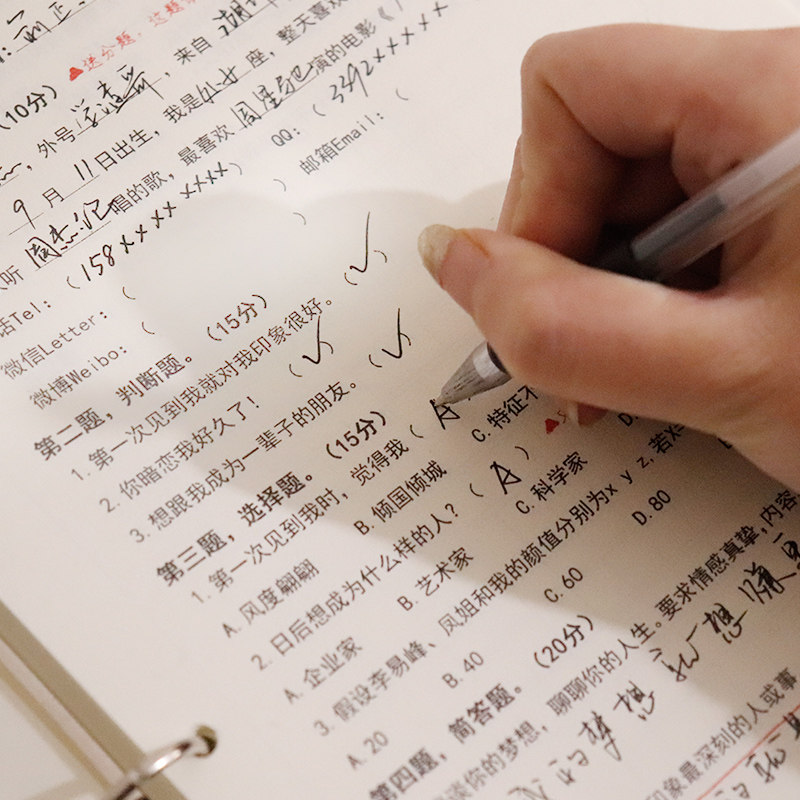 ▲送分题，这题
(10分)
，外号，来自湖
9月11日出生，我是处女座，整天喜欢
听周杰伦唱的歌，最喜欢周星驰演的电影《
话Tel：(158xxxx xxxx) QQ：(3392xxxxx
微信Letter：( ) 邮箱Email：(
微博Weibo：( )
第二题，判断题。(15分)
1. 第一次见到我就对我印象很好。(√)
2. 你暗恋我好久了！(√)
3. 想跟我成为一辈子的朋友。(√)
第三题，选择题。(15分)
1. 第一次见到我时，觉得我(A
A. 风度翩翩 B. 倾国倾城 C. 特征不
2. 日后想成为什么样的人？(A)
A. 企业家 B. 艺术家 C. 科学家 D.
3. 假设李易峰、凤姐和我的颜值分别为x y z，若x=
A. 20 B. 40 C. 60 D. 80
第四题，简答题。(20分)
谈你的梦想，聊聊你的人生。要求情感真挚，内容
印象最深刻的人或事